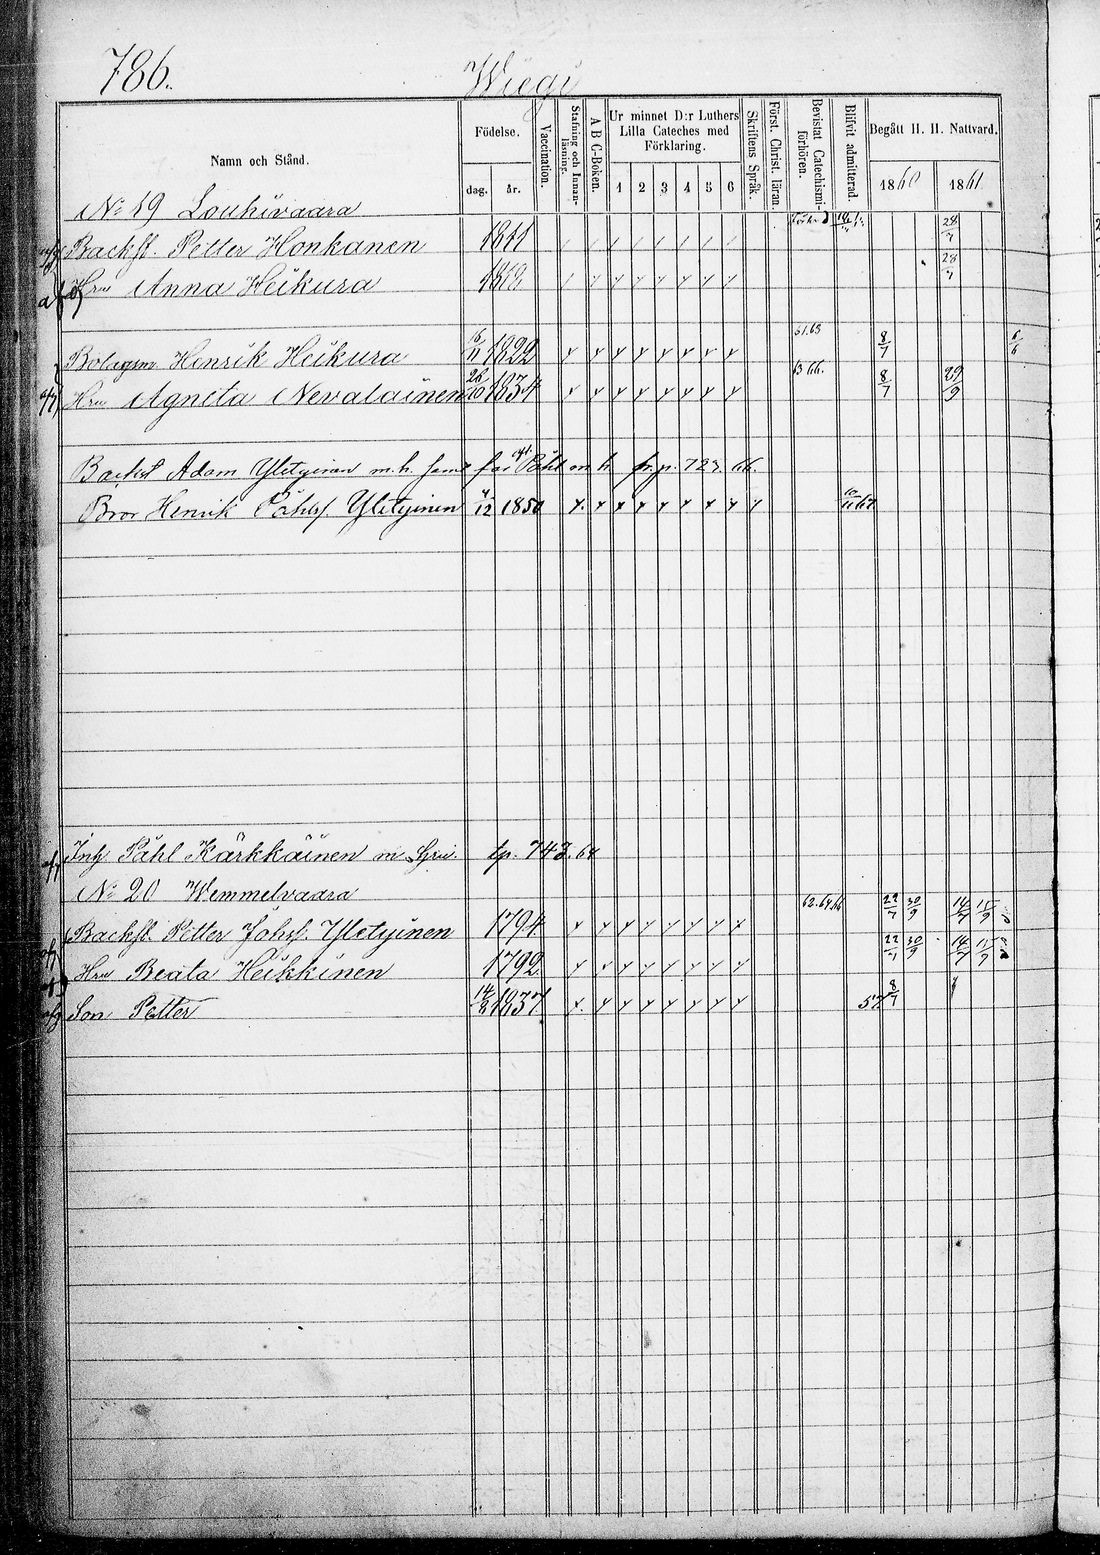 786.
Wiegi
Namn och Stånd.
Födelse.
dag. år.
Vaccination.
Stafning och Innan-läsning.
A B C-Boken.
Ur minnet D:r Luthers Lilla Cateches med Förklaring.
1 2 3 4 5 6
Skriftens Språk.
Först. Christ. läran.
Bevistat Catechismi-förhören.
Blifvit admitterad.
Begått H. H. Nattvard.
1860 1861
No 19 Louhivaara
Backst. Petter Honkanen 1811 28/7
Hru Anna Heikura 28/7
Bolagsm Henrik Heikura 6/11 1822 61.63 8/7 6/6
Hru Agneta Nevalainen 26/10 1834 63 66. 8/7 29/9
Backst Adam Yletyinen m. h. m h. fr. p. 723. 66.
Bror Henrik Påhls. Yletyinen 4/12 1850
Inh Påhl Kärkkäinen m tp. 743. 64
No 20 Wemmelvaara
Backst. Petter Johss. Yletyinen 1794 62.64.66 22/7 30/9 14/7
Hru Beata Heikkinen 1792 22/7 30/9 14/7
Son Petter 1837 57 8/7